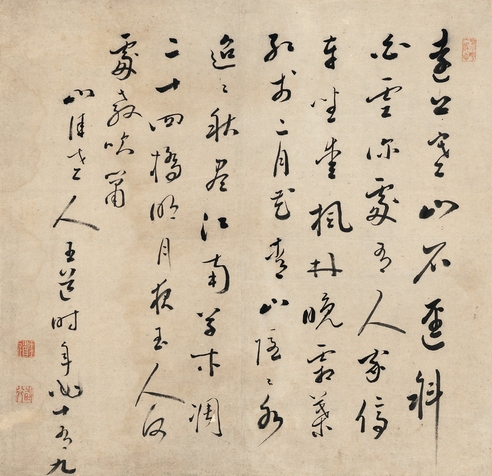 遠上寒山石徑斜
白雲深處有人家停
車坐愛楓林晚霜葉
紅於二月花青山隱〻水
迢〻秋盡江南草木凋
二十四橋明月夜玉人何
處教吹簫
老人王時年十九